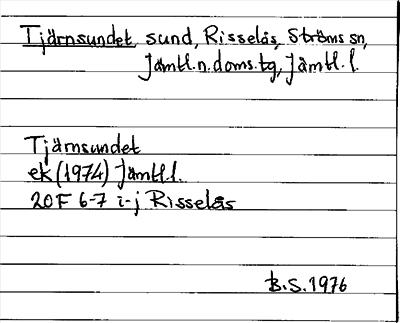 Tjärnsundet, sund, Risselås, Ströms sn,
Jämtl.n.doms.tg, Jämtl.l.
Tjärnsundet
ek (1974) Jämtl.l.
20F 6-7 i-j Risselås
B.S. 1976